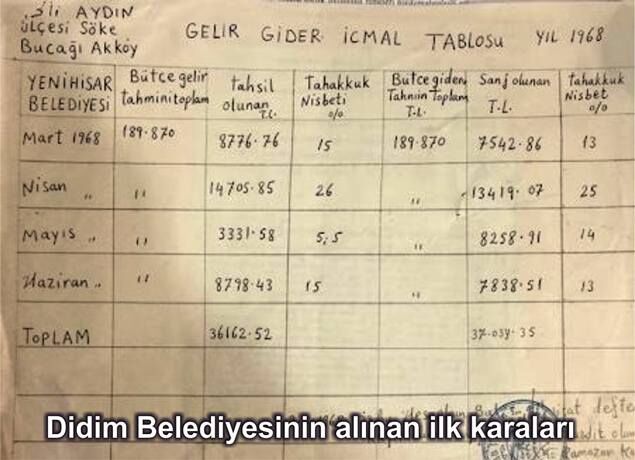 İli AYDIN
ilçesi Söke
Bucağı Akköy
GELİR GİDER İCMAL TABLOSU YIL 1968
YENİHİSAR BELEDİYESİ Bütce gelir tahmini toplam tahsil olunan T.L. Tahakkuk Nisbeti o/o Bütce gider Tahmin Toplam T.L. Sarf olunan T.L. tahakkuk Nisbet o/o
Mart 1968 189.870 8776.76 15 189.870 7542.86 13
Nisan " " 14705.85 26 " 13419.07 25
Mayıs " " 3331.58 5,5 " 8258.91 14
Haziran " " 8798.43 15 " 7838.51 13
TOPLAM 36162.52 37.034.35
defte
Didim Belediyesinin alınan ilk karaları
Ramazan Ka